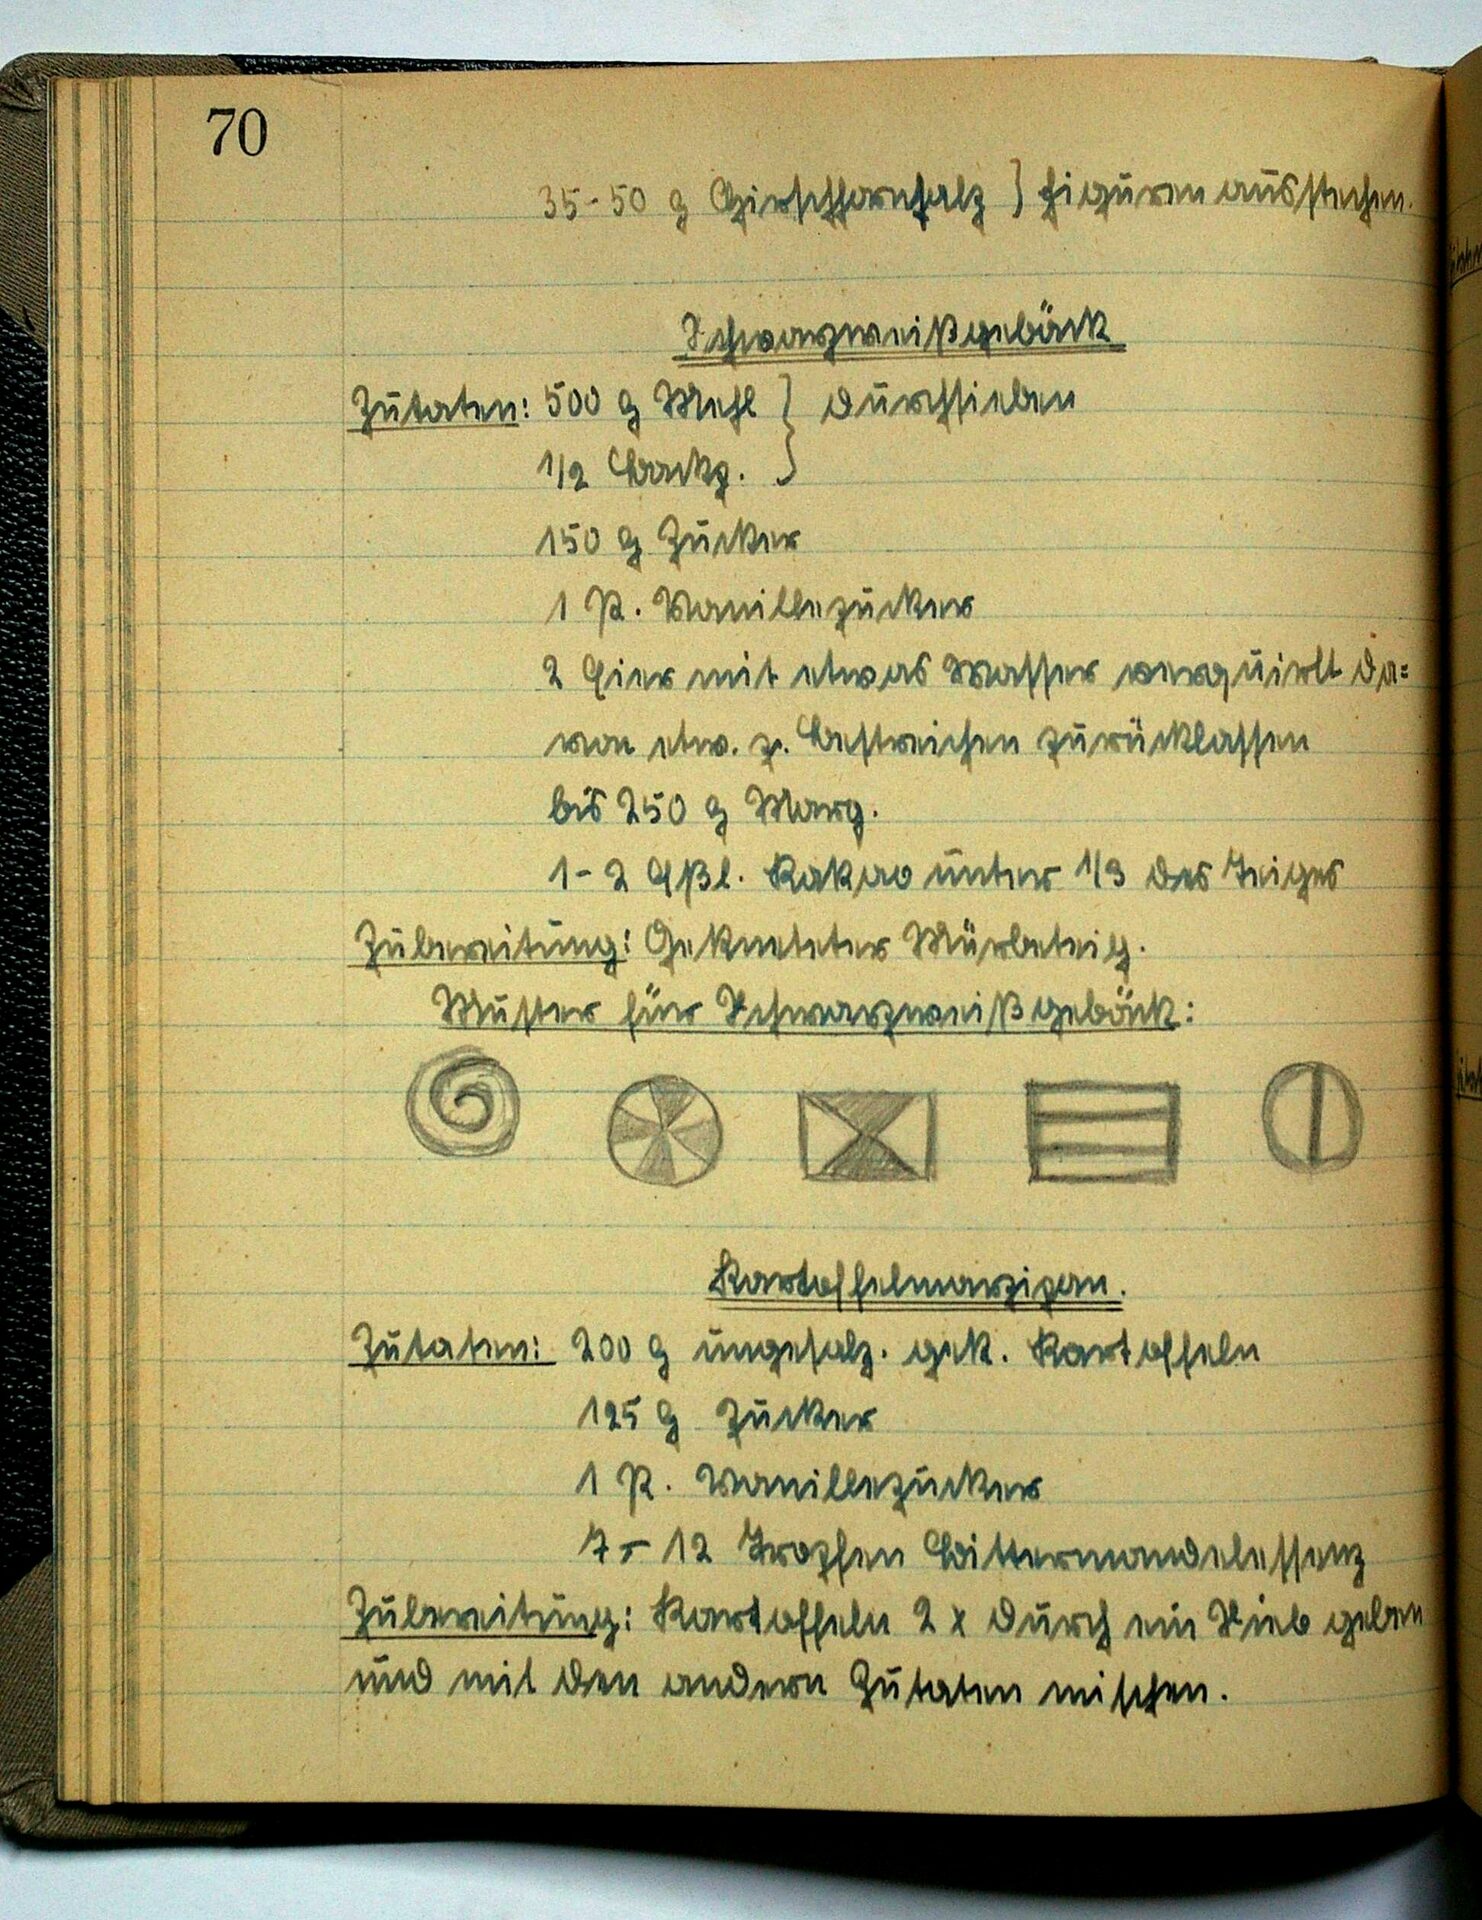 70
35-50 g Hirschhornsalz } Figuren ausstechen.
Schwarzweißgebäck
Zutaten: 500 g Mehl } durchsieben
1/2 Backp. }
150 g Zucker
1 P. Vanillezucker
2 Eier mit etwas Wasser verquirlt da=
von etw. z. Bestreichen zurücklassen
bis 250 g Marg.
1-2 Eßl. Kakao unter 1/3 des Teiges
Zubereitung: Gekneteter Mürbeteig.
Muster für Schwarzweißgebäck:
Kartoffelmarzipan.
Zutaten: 200 g ungesalz. gek. Kartoffeln
125 g Zucker
1 P. Vanillezucker
7-12 Tropfen Bittermandelessenz
Zubereitung: Kartoffeln 2 x durch ein Sieb geben
und mit den andern Zutaten mischen.